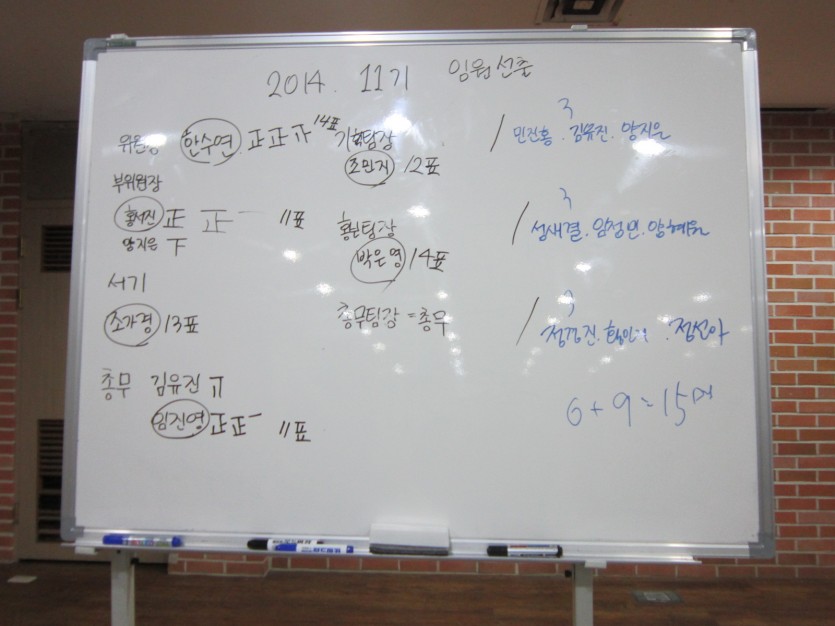 2014. 11기 임원선출
위원장 한수연 正正 14표
부위원장
황서진 正 正一 11표
양지은 下
서기
조가경 13표
총무 김유진
임진영 正正一 11표
기획팀장
조민지 12표
홍보팀장
박은영 14표
총무팀장 = 총무
3
/ 민진홍 . 김유진 . 양지은
3
/ 성새결 . 임정민 . 양혜원
3
/ 정경진 . . 정선아
6 + 9 = 15명